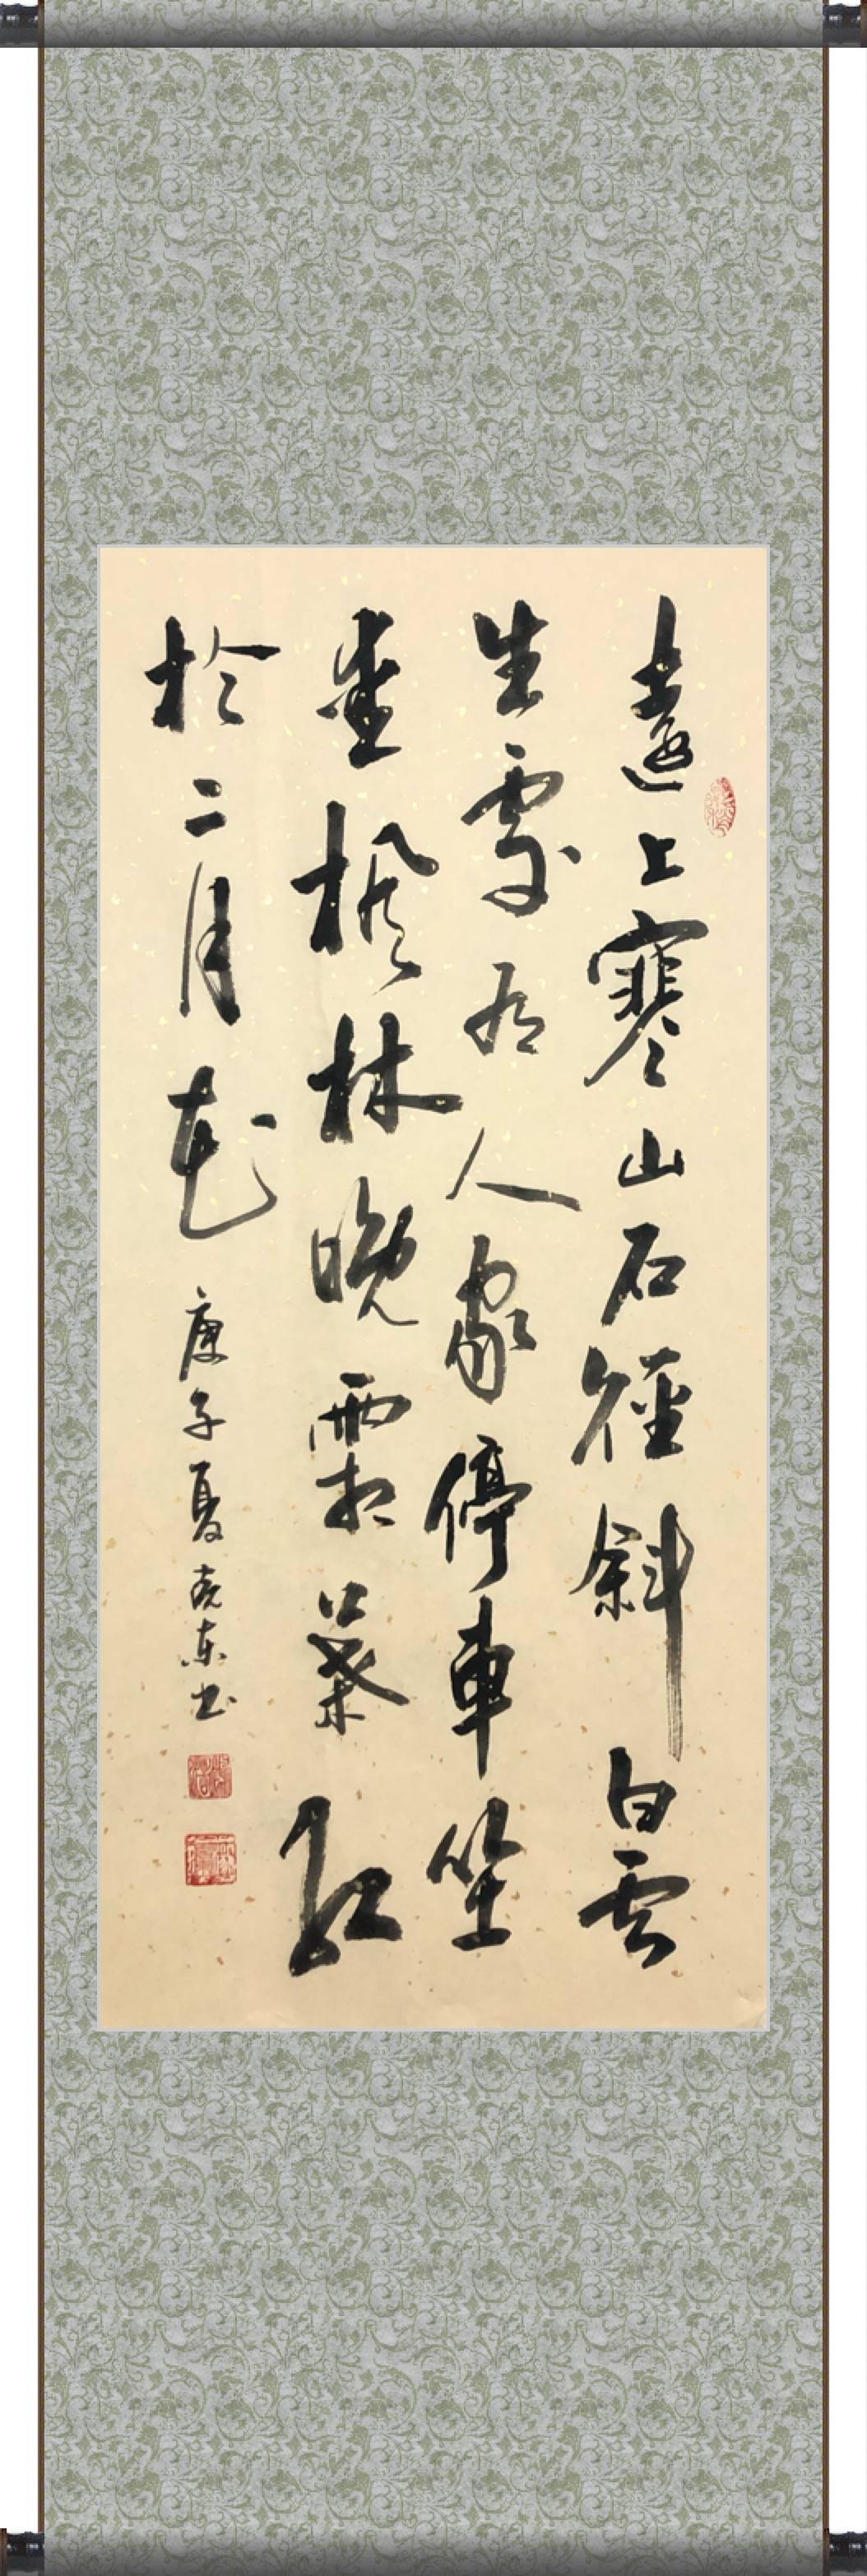 遠上寒山石徑斜白雲
生處有人家停車坐
愛楓林晚霜葉紅
於二月花庚子夏东书